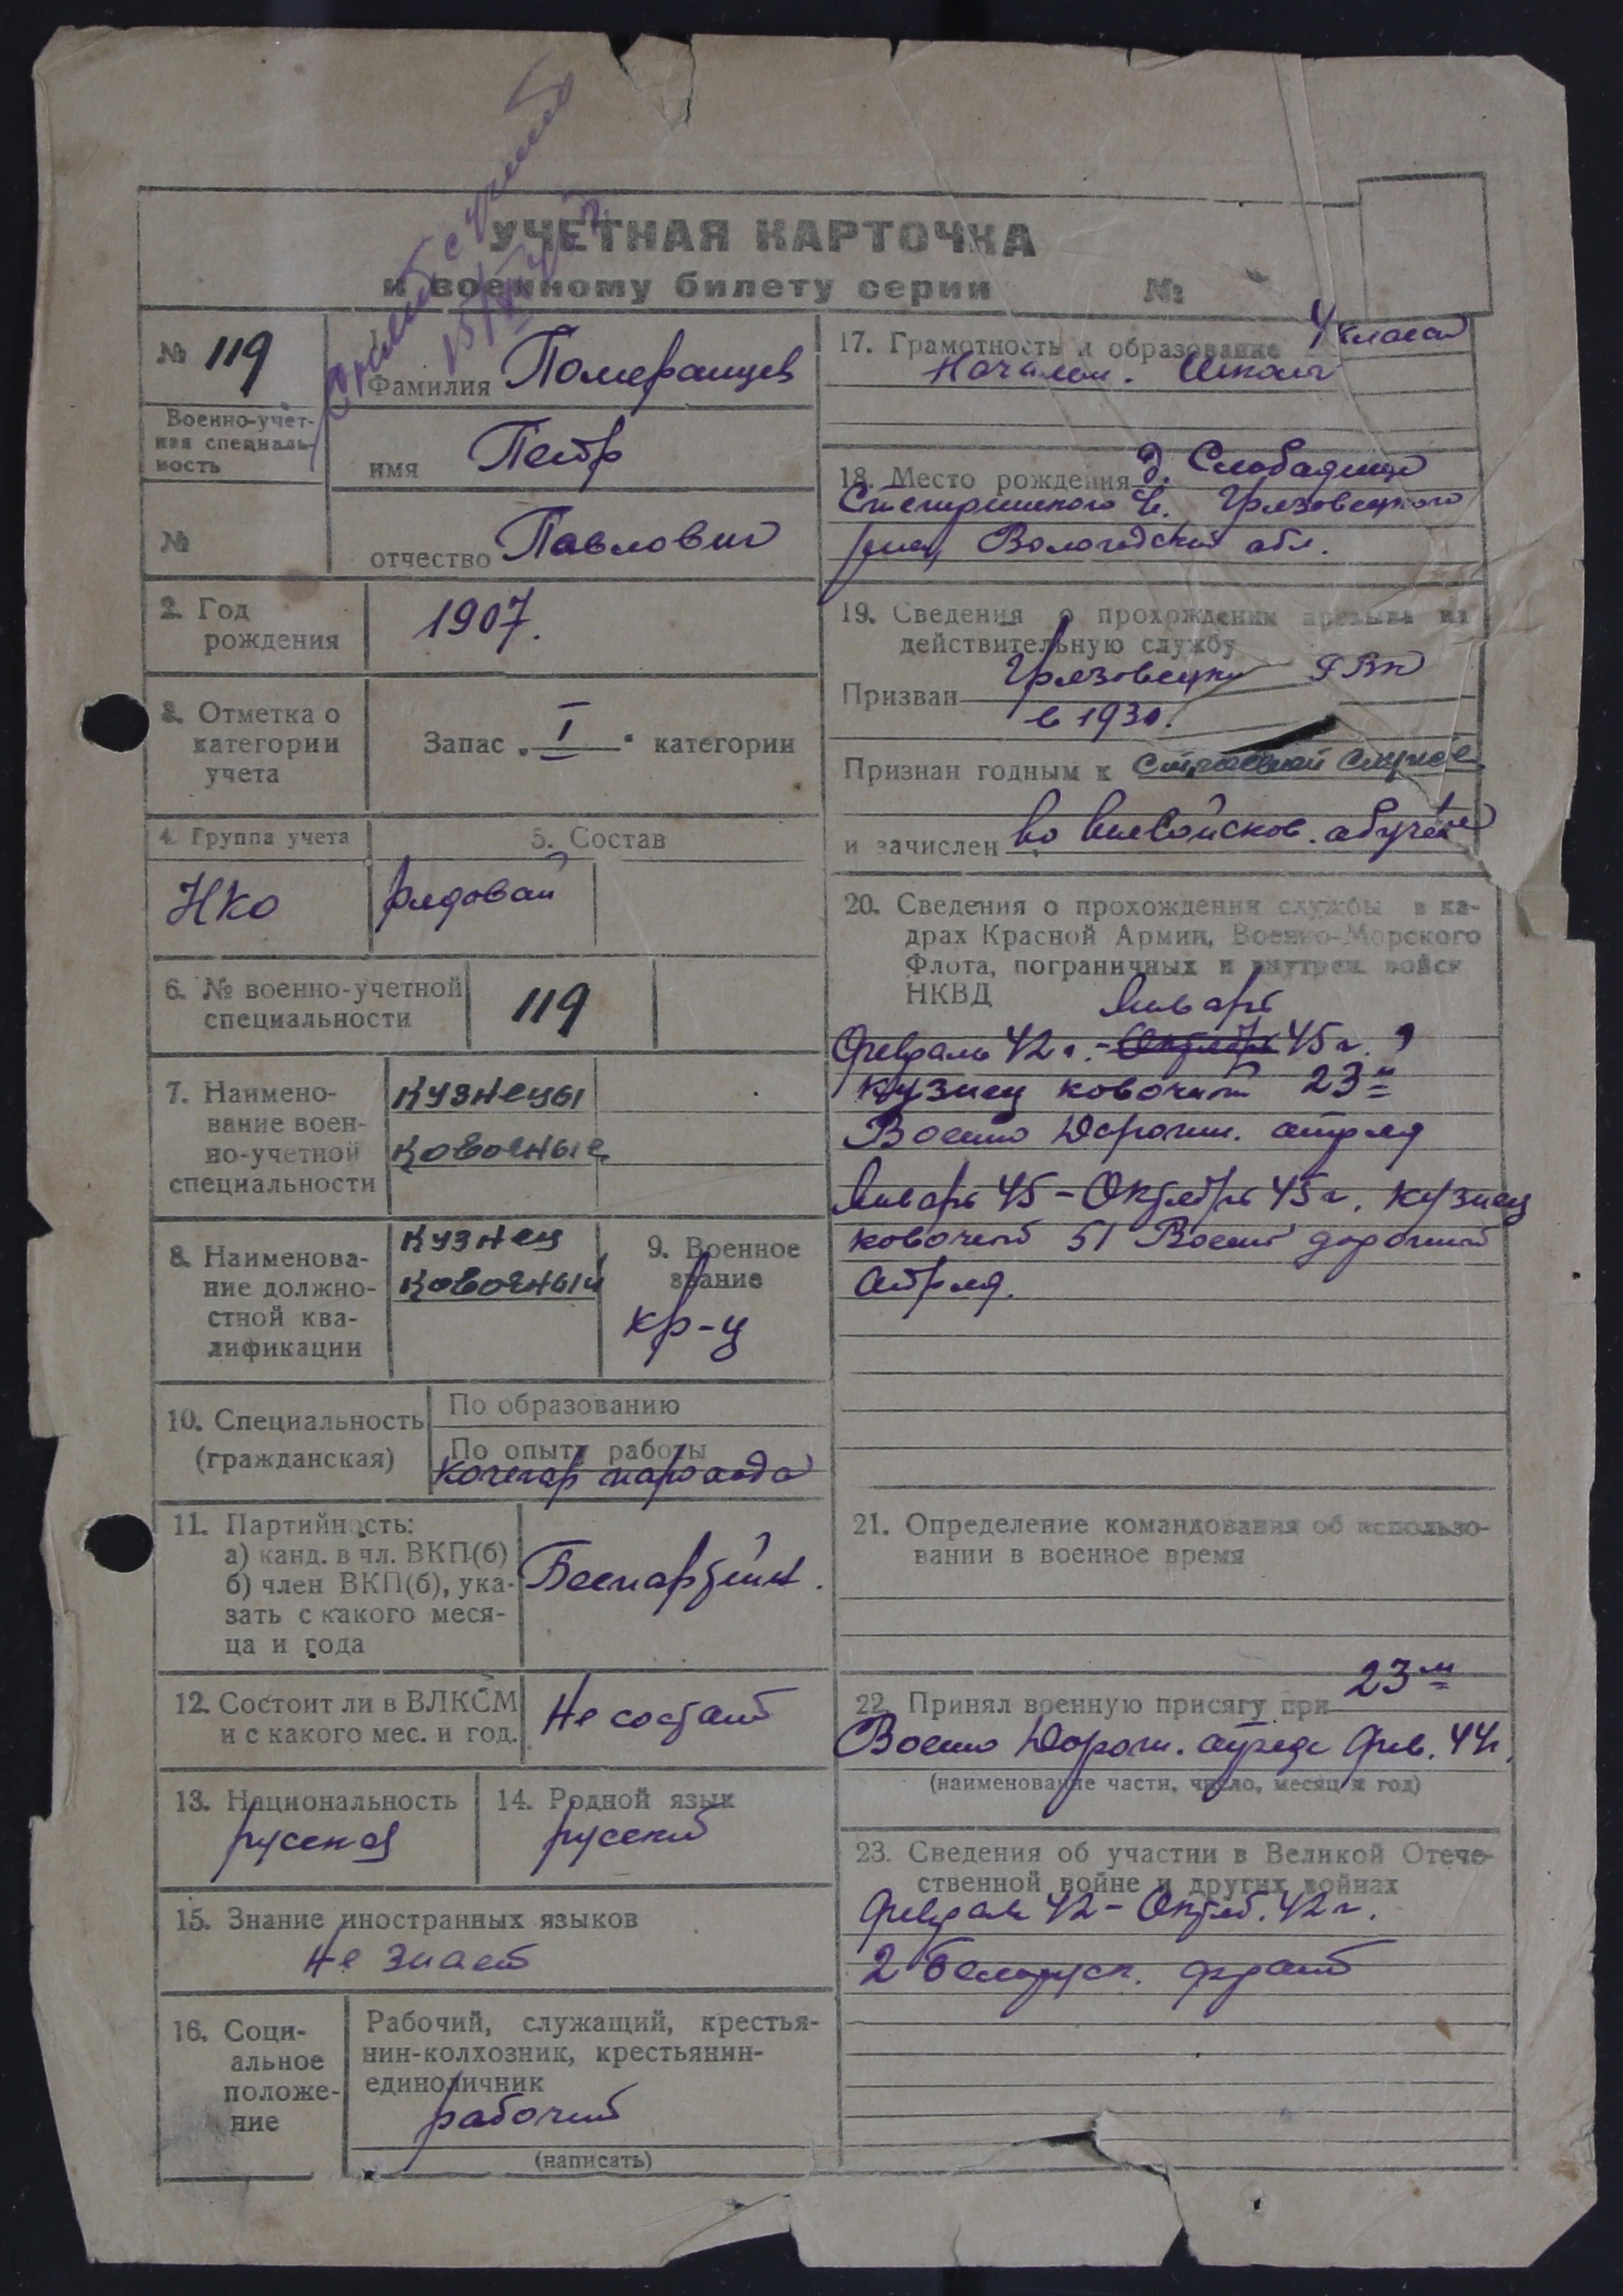 УЧЕТНАЯ КАРТОЧКА
к военному билету серии №
№ 119
Фамилия Померанцев
Военно-учет-
ная специаль-
ность
имя Петр
№
отчество Павлович
2. Год
рождения
1907.
3. Отметка о
категории
учета
Запас „ I " категории
4. Группа учета
5. Состав
НКО
рядовой
6. № военно-учетной
специальности
119
7. Наимено-
вание воен-
но-учетной
специальности
Кузнецы
Ковочные
8. Наименова-
ние должно-
стной ква-
лификации
Кузнец
Ковочный
9. Военное
звание
кр-ц
10. Специальность
(гражданская)
По образованию
По опыту работы
Кочегар паровоза
11. Партийность:
а) канд. в чл. ВКП(б)
б) член ВКП(б), ука-
зать с какого меся-
ца и года
Беспартийн.
12. Состоит ли в ВЛКСМ
и с какого мес. и год.
Не состоит
13. Национальность
русский
14. Родной язык
русский
15. Знание иностранных языков
Не знает
16. Соци-
альное
положе-
ние
Рабочий, служащий, крестья-
нин-колхозник, крестьянин-
единоличник
рабочий
(написать)
17. Грамотность и образование 4 класса
Началь. школы
18. Место рождения д. Слободище
Грязовецкого
Вологодской обл.
19. Сведения о прохождении призыва на
действительную службу
Призван Грязовецким РВК
в 1930.
Признан годным к строевой службе
и зачислен во вневойсков. обучение
20. Сведения о прохождении службы в ка-
драх Красной Армии, Военно-Морского
Флота, пограничных и внутрен. войск
НКВД
Январь
Февраль 42 г. - Октябрь 45 г.
Кузнец ковочный 23й
Военно Дорожн. отряд
Январь 45 - Октябрь 45 г. Кузнец
ковочный 51 Военно дорожный
отряд.
21. Определение командования об использо-
вании в военное время
22. Принял военную присягу при 23м
Военно Дорожн. отряде Фев. 44г.
(наименование части, число, месяц и год)
23. Сведения об участии в Великой Отече-
ственной войне и других войнах
Февраль 42 - Октяб. 42 г.
2 Белорусск. фронт